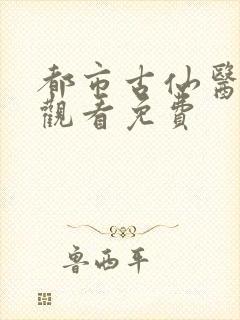 都市古仙醫
觀看免費
魯西平